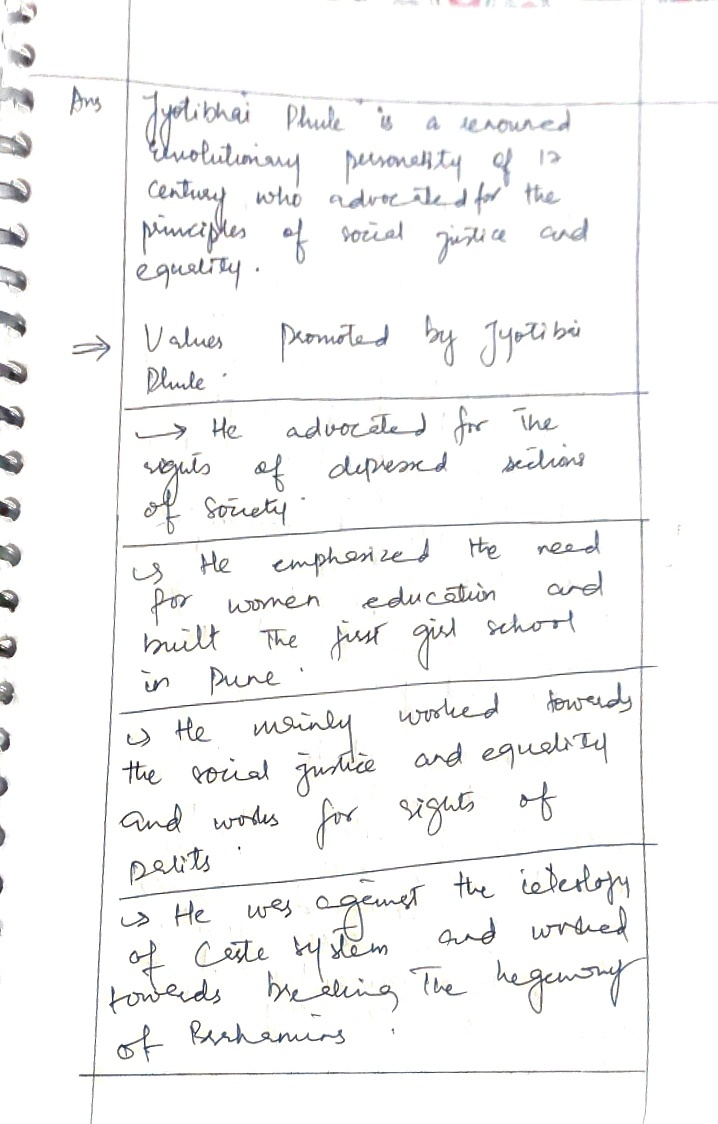 Ans Jyotibhai Phule is a renouned
revolutionary personality of 12
century who advocated for the
principles of social justice and
equality.
⇒ Values promoted by Jyotiba
Phule.
→ He advocated for the
rights of depressed sections
of Society.
↳ He emphasized the need
for women education and
built the first girl school
in Pune.
↳ He mainly worked towards
the social justice and equality
and works for rights of
Dalits.
↳ He was against the
of Caste system and worked
towards breaking The hegemony
of